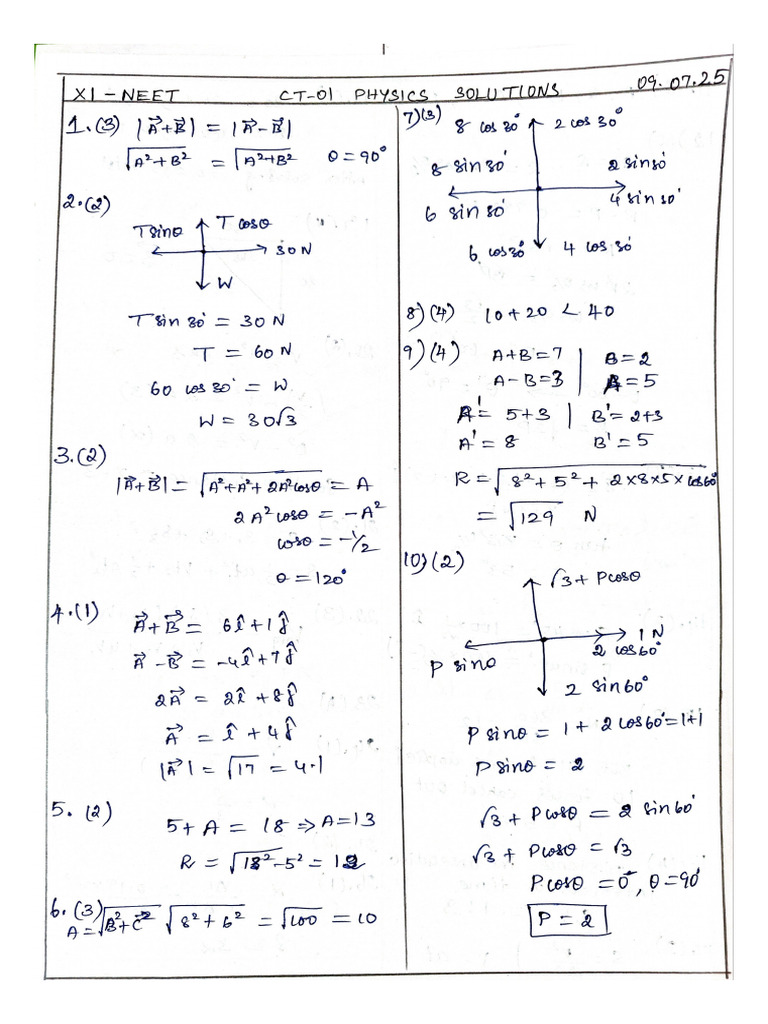 1
XI - NEET CT-01 PHYSICS SOLUTIONS 09.07.25
1. (3) |A⃗+B⃗| = |A⃗-B⃗|
√A²+B² = √A²+B² θ = 90°
2. (2)
T cosθ
Tsinθ
30 N
W
T sin 30° = 30 N
T = 60 N
60 cos 30° = W
W = 30√3
3. (2)
|A⃗+B⃗| = √A²+A²+2A²cosθ = A
2A² cosθ = -A²
cosθ = -1/2
θ = 120°
4. (1)
A⃗+B⃗ = 6î+1ĵ
A⃗-B⃗ = -4î+7ĵ
2A⃗ = 2î+8ĵ
A⃗ = î+4ĵ
|A⃗| = √17 = 4.1
5. (2)
5+A = 18 ⇒ A=13
R = √13²-5² = 12
6. (3)
A = √B²+C² √8²+6² = √100 = 10
7) (3)
8 cos 30° 2 cos 30°
8 sin 30° 2 sin 30°
6 sin 30° 4 sin 30°
6 cos 30° 4 cos 30°
8) (4) 10+20 < 40
9) (4) A+B = 7 | B = 2
A-B = 3 | A = 5
A' = 5+3 | B' = 2+3
A' = 8 B' = 5
R = √8²+5²+2×8×5×cos60°
= √129 N
10) (2)
√3 + Pcosθ
1 N
P sinθ 2 cos60°
2 sin60°
P sinθ = 1 + 2 cos60° = 1+1
P sinθ = 2
√3 + Pcosθ = 2 sin60°
√3 + Pcosθ = √3
Pcosθ = 0, θ = 90°
P = 2